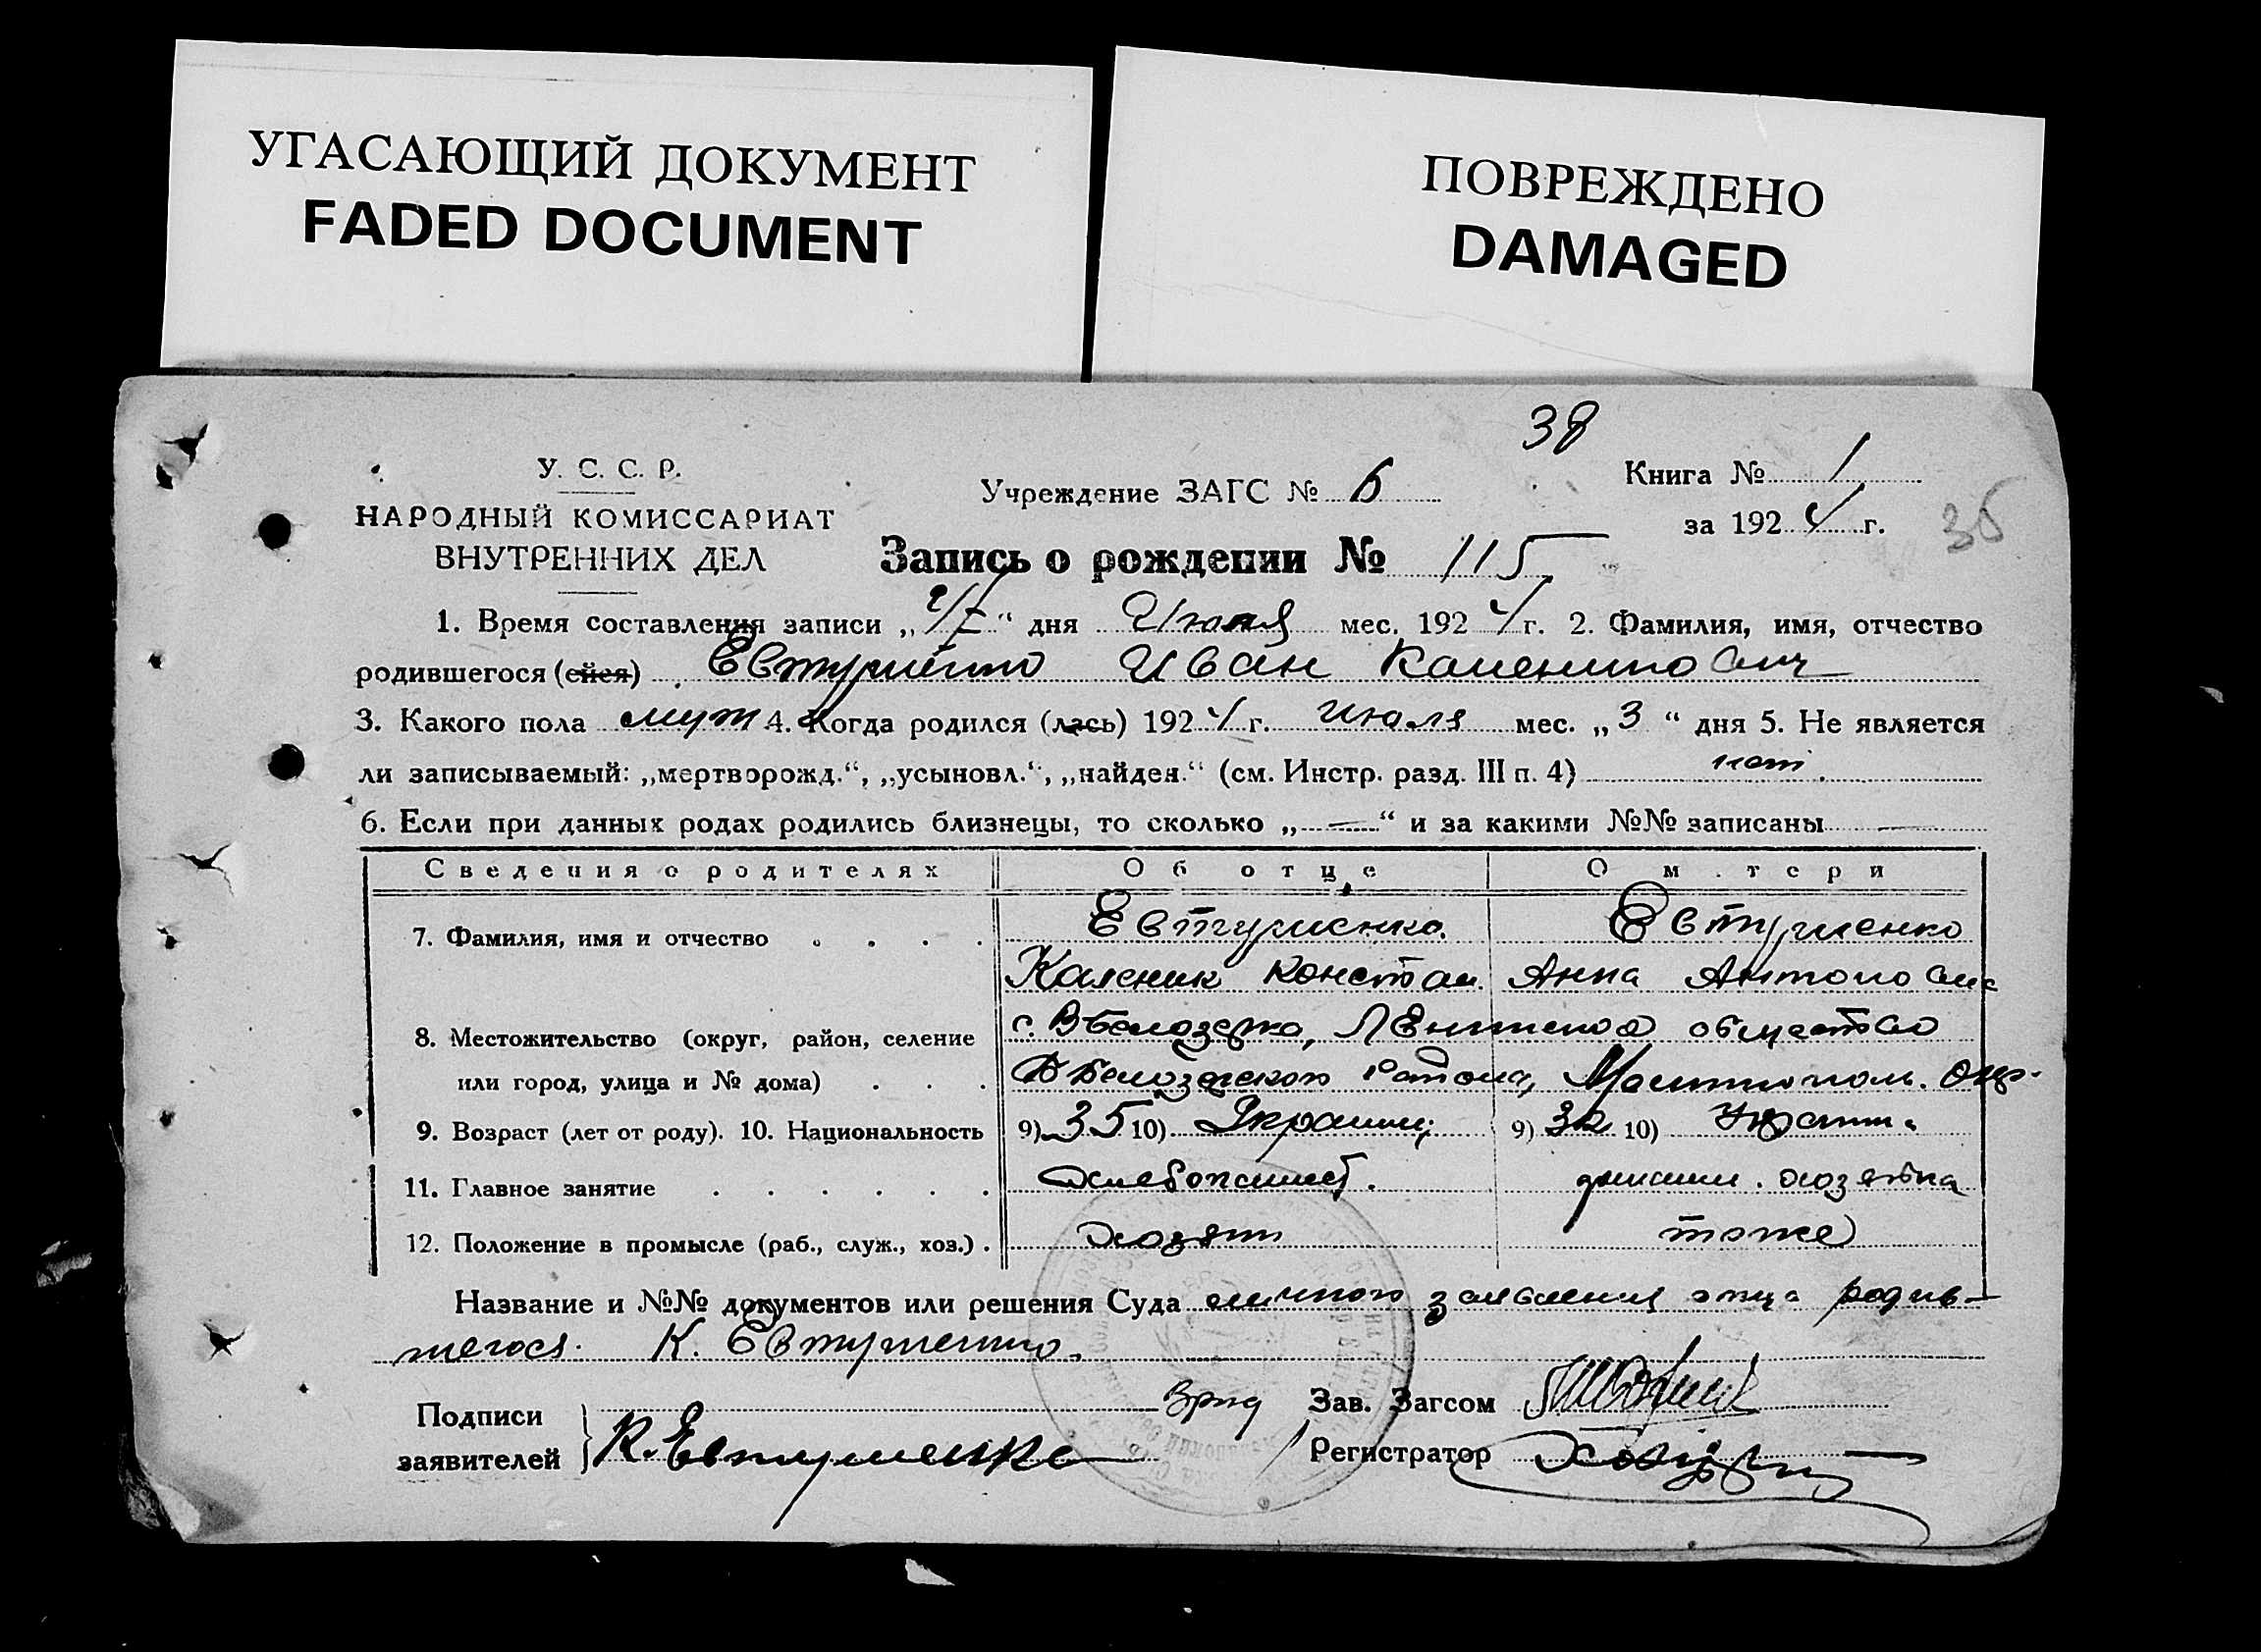 УГАСАЮЩИЙ ДОКУМЕНТ
FADED DOCUMENT
ПОВРЕЖДЕНО
DAMAGED
38
У. С. С. Р.
НАРОДНЫЙ КОМИССАРИАТ
ВНУТРЕННИХ ДЕЛ
Учреждение ЗАГС № 6
Книга № 1
за 1924 г.
35
Запись о рождении № 115
1. Время составления записи „ “ дня Июля мес. 1924 г. 2. Фамилия, имя, отчество
родившегося (ейся) Евтушенко Иван Каленикович
3. Какого пола муж 4. Когда родился (лась) 1924 г. Июля мес. „3“ дня 5. Не является
ли записываемый: „мертворожд.“, „усыновл.“, „найден.“ (см. Инстр. разд. III п. 4) нет.
6. Если при данных родах родились близнецы, то сколько „—“ и за какими №№ записаны —
Сведения о родителях Об отце О м.тери
7. Фамилия, имя и отчество Евтушенко Евтушенко
Каленик Констан. Анна Антоновна
8. Местожительство (округ, район, селение с. ВБелозерка, Ленинской общества
или город, улица и № дома) ВБелозерского Района, Мелитополь. Окр.
9. Возраст (лет от роду). 10. Национальность 9) 35 10) Украинц. 9) 32 10) Украин.
11. Главное занятие хлебопашец. домашн. хозяйка
12. Положение в промысле (раб., служ., хоз.) хозяин тоже
Название и №№ документов или решения Суда личного заявления отца родив-
шегося. К. Евтушенко.
Подписи
заявителей } К. Евтушенко
Врид Зав. Загсом
Регистратор